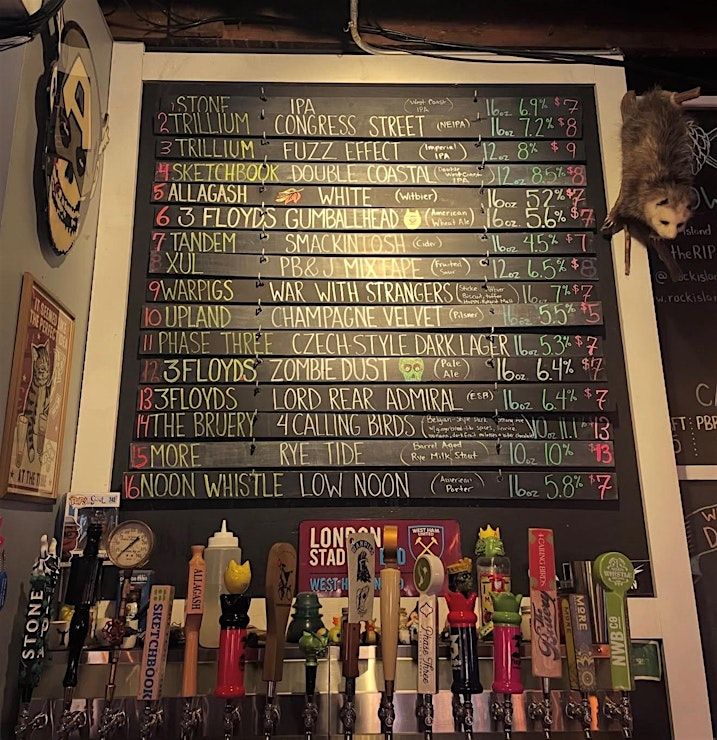 1 STONE IPA (West Coast IPA) 16oz 6.9% $7
2 TRILLIUM CONGRESS STREET (NEIPA) 16oz 7.2% $8
3 TRILLIUM FUZZ EFFECT (Imperial IPA) 12oz 8% $9
4 SKETCHBOOK DOUBLE COASTAL (Double West Coast IPA) 12oz 8.5% $8
5 ALLAGASH WHITE (Witbier) 16oz 5.2% $7
6 3 FLOYDS GUMBALLHEAD (American Wheat Ale) 16oz 5.6% $7
7 TANDEM SMACKINTOSH (Cider) 16oz 4.5% $7
8 XUL PB&J MIXTAPE (Fruited Sour) 12oz 6.5% $8
9 WARPIGS WAR WITH STRANGERS 16oz 7% $7
10 UPLAND CHAMPAGNE VELVET (Pilsner) 16oz 5.5% $5
11 PHASE THREE CZECH-STYLE DARK LAGER 16oz 5.3% $7
12 3 FLOYDS ZOMBIE DUST (Pale Ale) 16oz 6.4% $7
13 3 FLOYDS LORD REAR ADMIRAL (ESB) 16oz 6.4% $7
14 THE BRUERY 4 CALLING BIRDS 10oz 11.1% $13
15 MORE RYE TIDE (Barrel Aged Rye Milk Stout) 10oz 10% $13
16 NOON WHISTLE LOW NOON (American Porter) 16oz 5.8% $7
LONDON
STAD
WEST HAM
UNITED
WEST H
STONE
SKETCHBOOK
ALLAGASH
Phase Three
4 CALLING BIRDS
The Bruery
MORE
WHISTLE
NWB CO
IT SEEMED
LIKE THE PERFECT
AT THE TI
Island
theRIP
@rockisla
w.rockisla
FT: PBR